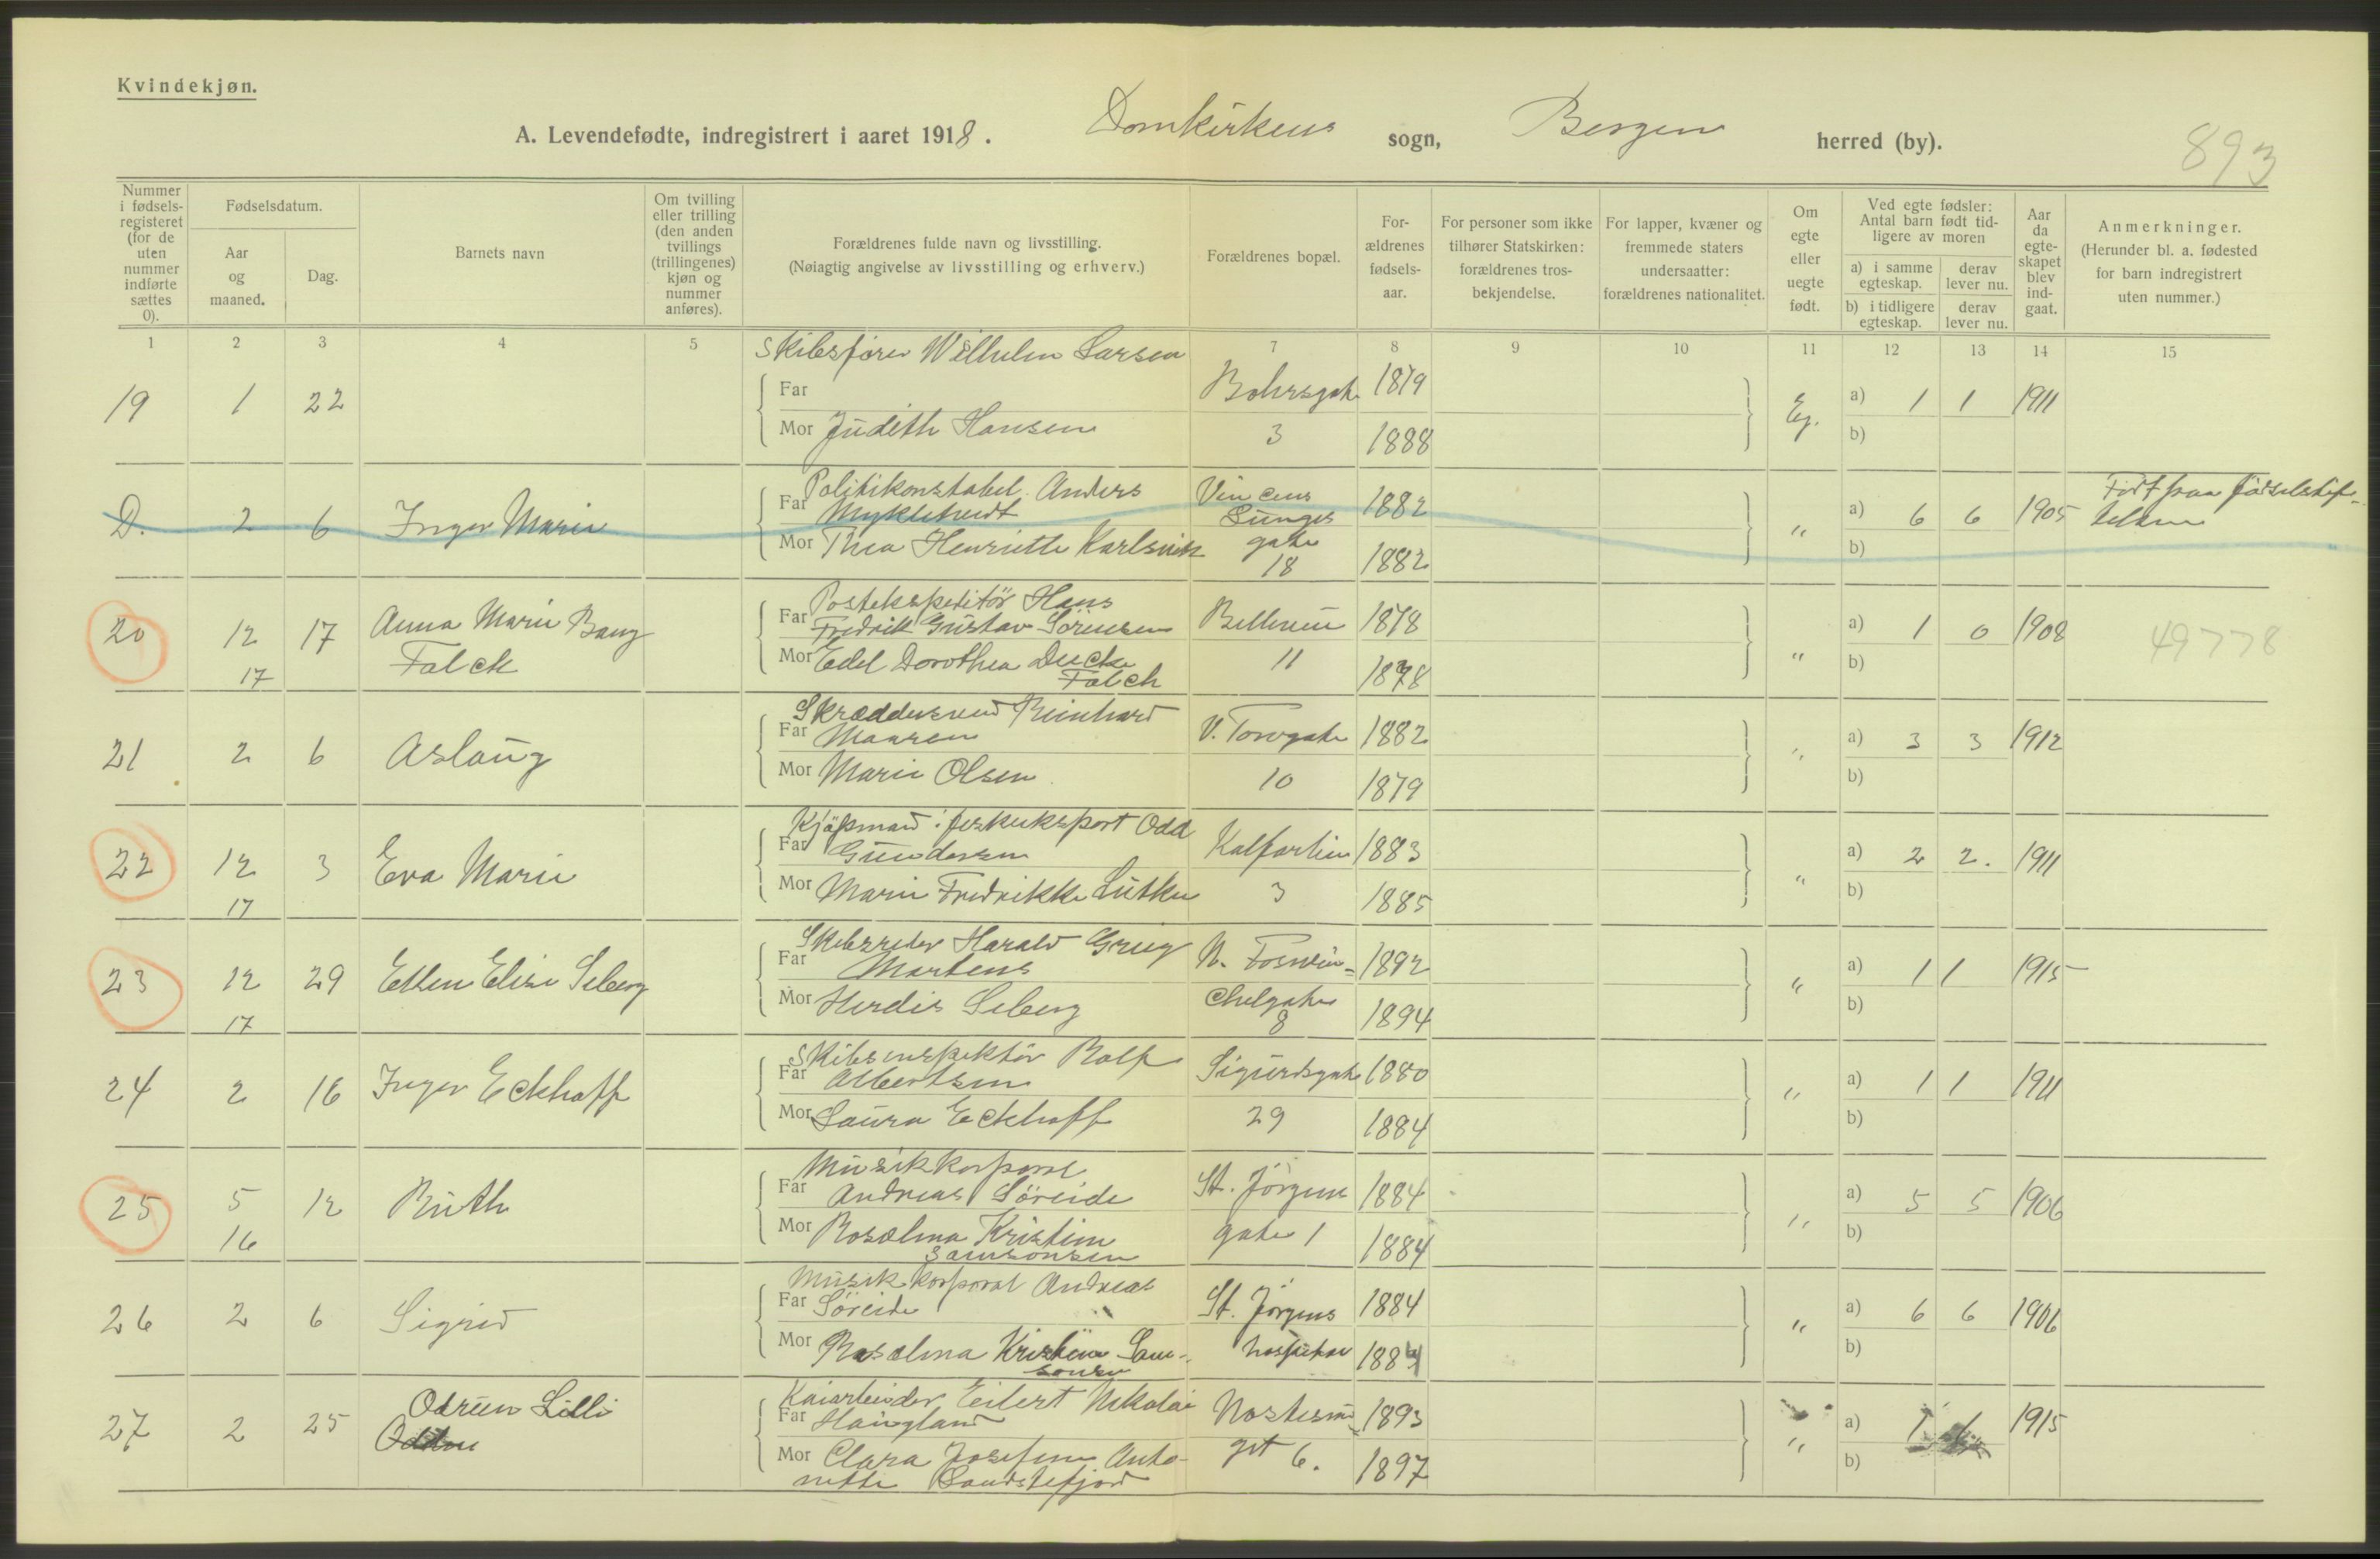 Kvindekjøn.
A. Levendefødte, indregistrert i aaret 1918. Domkirkens sogn, Bergen herred (by).
893
Nummer i fødsels-registeret (for de uten nummer indførte sættes 0).
Fødselsdatum.
Aar og maaned.
Dag.
Barnets navn
Om tvilling eller trilling (den anden tvillings (trillingenes) kjøn og nummer anføres).
Forældrenes fulde navn og livsstilling.
(Nøiagtig angivelse av livsstilling og erhverv.)
Forældrenes bopæl.
For-ældrenes fødsels-aar.
For personer som ikke tilhører Statskirken: forældrenes tros-bekjendelse.
For lapper, kvæner og fremmede staters undersaatter: forældrenes nationalitet.
Om egte eller uegte født.
Ved egte fødsler: Antal barn født tid-ligere av moren
a) i samme egteskap.
derav lever nu.
b) i tidligere egteskap.
derav lever nu.
Aar da egte-skapet blev ind-gaat.
Anmerkninger.
(Herunder bl. a. fødested for barn indregistrert uten nummer.)
1 2 3 4 5 6 7 8 9 10 11 12 13 14 15
Skibsfører Wilhelm Larsen
19 1 22 Far Bohrsgate 1879 Eg. a) 1 1 1911
Mor Judith Hansen 3 1888 b)
Politikonstabel Anders Vincens
D. 2 6 Inger Marie Far Myklebust Lunges 1882 " a) 6 6 1905 Født paa fødselsstif-
Mor Thea Henriette Karlsvik gate 18 1882 b) telsen
Postekspeditör Hans
20 12 17 Anna Marie Bang Far Fredrik Gustav Sörensen Bellevue 1878 " a) 1 0 1908 49778
17 Falck Mor Edel Dorothea Falck 11 1878 b)
Skræddersvend Reinhard
21 2 6 Aslaug Far V. Torvgate 1882 " a) 3 3 1912
Mor Marie Olsen 10 1879 b)
Kjöpmand i fiskeeksport Odd
22 12 3 Eva Marie Far Gundersen Kalfarlien 1883 " a) 2 2. 1911
17 Mor Marie Fredrikke Lütken 3 1885 b)
Skibsreder Harald Grieg
23 12 29 Ellen Elise Seberg Far Martens N. Foswin- 1892 " a) 1 1 1915
17 Mor Herdis Seberg ckelgate 8 1894 b)
Skibsinspektör Rolf
24 2 16 Inger Eckhoff Far Albertsen Sigurdsgate 1880 " a) 1 1 1911
Mor Laura Eckhoff 29 1884 b)
Musikkorporal
25 5 12 Ruth Far Andreas Söreide St. Jörgens 1884 " a) 5 5 1906
16 Mor Rosalina Kristine Samsonsen gate 1 1884 b)
Musikkorporal Andreas
26 2 6 Sigrid Far Söreide St. Jörgens 1884 " a) 6 6 1906
Mor Rosalina Kristine Sam-sonsen hospital 1884 b)
Kaiarbeider Eilert Nikolai
27 2 25 Odrun Lilli Far Haugland Nøstesmu- 1893 " a) 1 1 1915
Mor Clara Josefine Anto-nette Sandstefjord get 6. 1897 b)